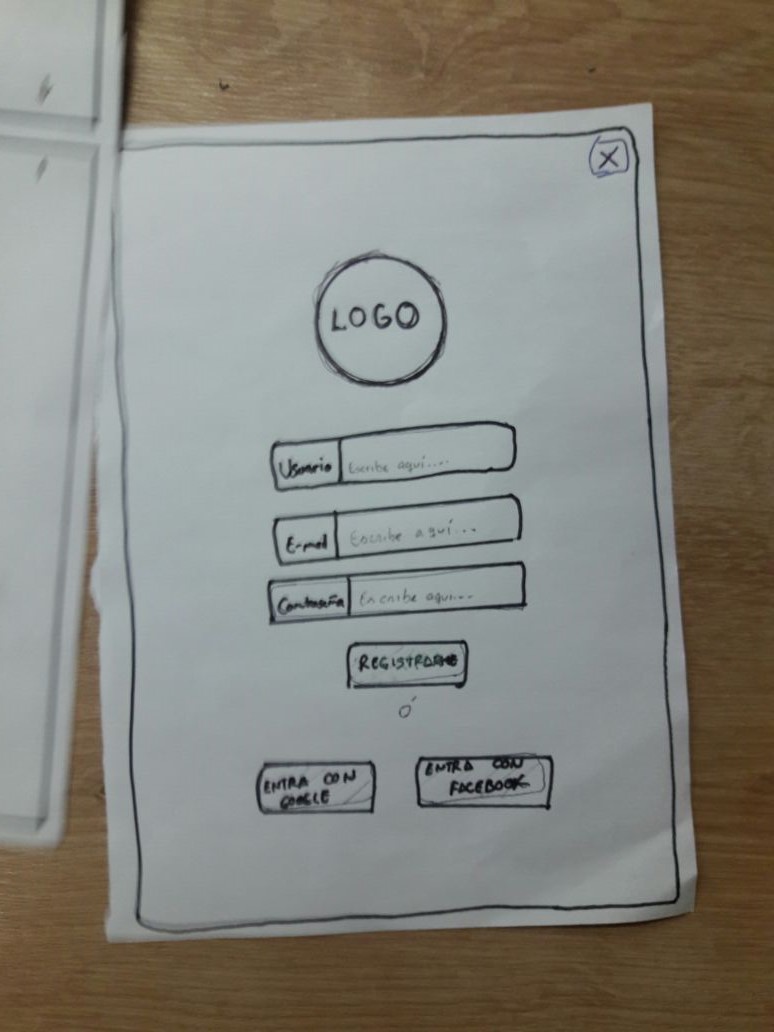 X
LOGO
Usuario Escribe aquí....
E-mail Escribe aquí...
Contraseña Escribe aquí...
REGISTRARME
Ó
ENTRA CON
GOOGLE
ENTRA CON
FACEBOOK